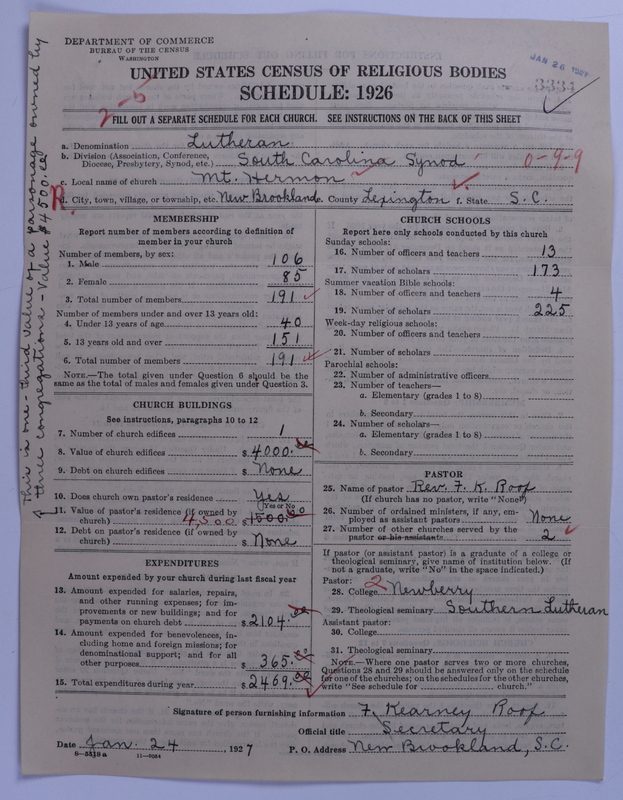 DEPARTMENT OF COMMERCE
BUREAU OF THE CENSUS
WASHINGTON
JAN 26 1927
3334
UNITED STATES CENSUS OF RELIGIOUS BODIES
SCHEDULE: 1926
2-5
FILL OUT A SEPARATE SCHEDULE FOR EACH CHURCH. SEE INSTRUCTIONS ON THE BACK OF THIS SHEET
a. Denomination Lutheran
b. Division (Association, Conference, Diocese, Presbytery, Synod, etc.) South Carolina Synod
0-9-9
c. Local name of church Mt. Hermon
R
d. City, town, village, or township, etc. New Brookland e. County Lexington f. State S. C.
This is one-third value of a parsonage owned by
three congregations - Value $4500.00
MEMBERSHIP
Report number of members according to definition of
member in your church
Number of members, by sex:
1. Male 106
2. Female 85
3. Total number of members 191
Number of members under and over 13 years old:
4. Under 13 years of age 40
5. 13 years old and over 151
6. Total number of members 191
NOTE.—The total given under Question 6 should be the
same as the total of males and females given under Question 3.
CHURCH BUILDINGS
See instructions, paragraphs 10 to 12
7. Number of church edifices 1
8. Value of church edifices $ 4000.00
9. Debt on church edifices $ None
10. Does church own pastor's residence Yes
(Yes or No)
11. Value of pastor's residence (if owned by
church) 4,500 $ 1500.00
12. Debt on pastor's residence (if owned by
church) $ None
EXPENDITURES
Amount expended by your church during last fiscal year
13. Amount expended for salaries, repairs,
and other running expenses; for im-
provements or new buildings; and for
payments on church debt $ 2104.00
14. Amount expended for benevolences, in-
cluding home and foreign missions; for
denominational support; and for all
other purposes $ 365.00
15. Total expenditures during year $ 2469.00
CHURCH SCHOOLS
Report here only schools conducted by this church
Sunday schools:
16. Number of officers and teachers 13
17. Number of scholars 173
Summer vacation Bible schools:
18. Number of officers and teachers 4
19. Number of scholars 225
Week-day religious schools:
20. Number of officers and teachers
21. Number of scholars
Parochial schools:
22. Number of administrative officers
23. Number of teachers—
a. Elementary (grades 1 to 8)
b. Secondary
24. Number of scholars—
a. Elementary (grades 1 to 8)
b. Secondary
PASTOR
25. Name of pastor Rev. F. K. Roof
(If church has no pastor, write "None")
26. Number of ordained ministers, if any, em-
ployed as assistant pastors None
27. Number of other churches served by the
pastor or his assistants 2
If pastor (or assistant pastor) is a graduate of a college or
theological seminary, give name of institution below. (If
not a graduate, write "No" in the space indicated.)
Pastor:
28. College 2 Newberry
29. Theological seminary Southern Lutheran
Assistant pastor:
30. College
31. Theological seminary
NOTE.—Where one pastor serves two or more churches,
Questions 28 and 29 should be answered only on the schedule
for one of the churches; on the schedules for the other churches,
write "See schedule for church."
Signature of person furnishing information F. Kearney Roof
Official title Secretary
Date Jan. 24, 1927 P. O. Address New Brookland, S.C.
8-5518a 11-9034